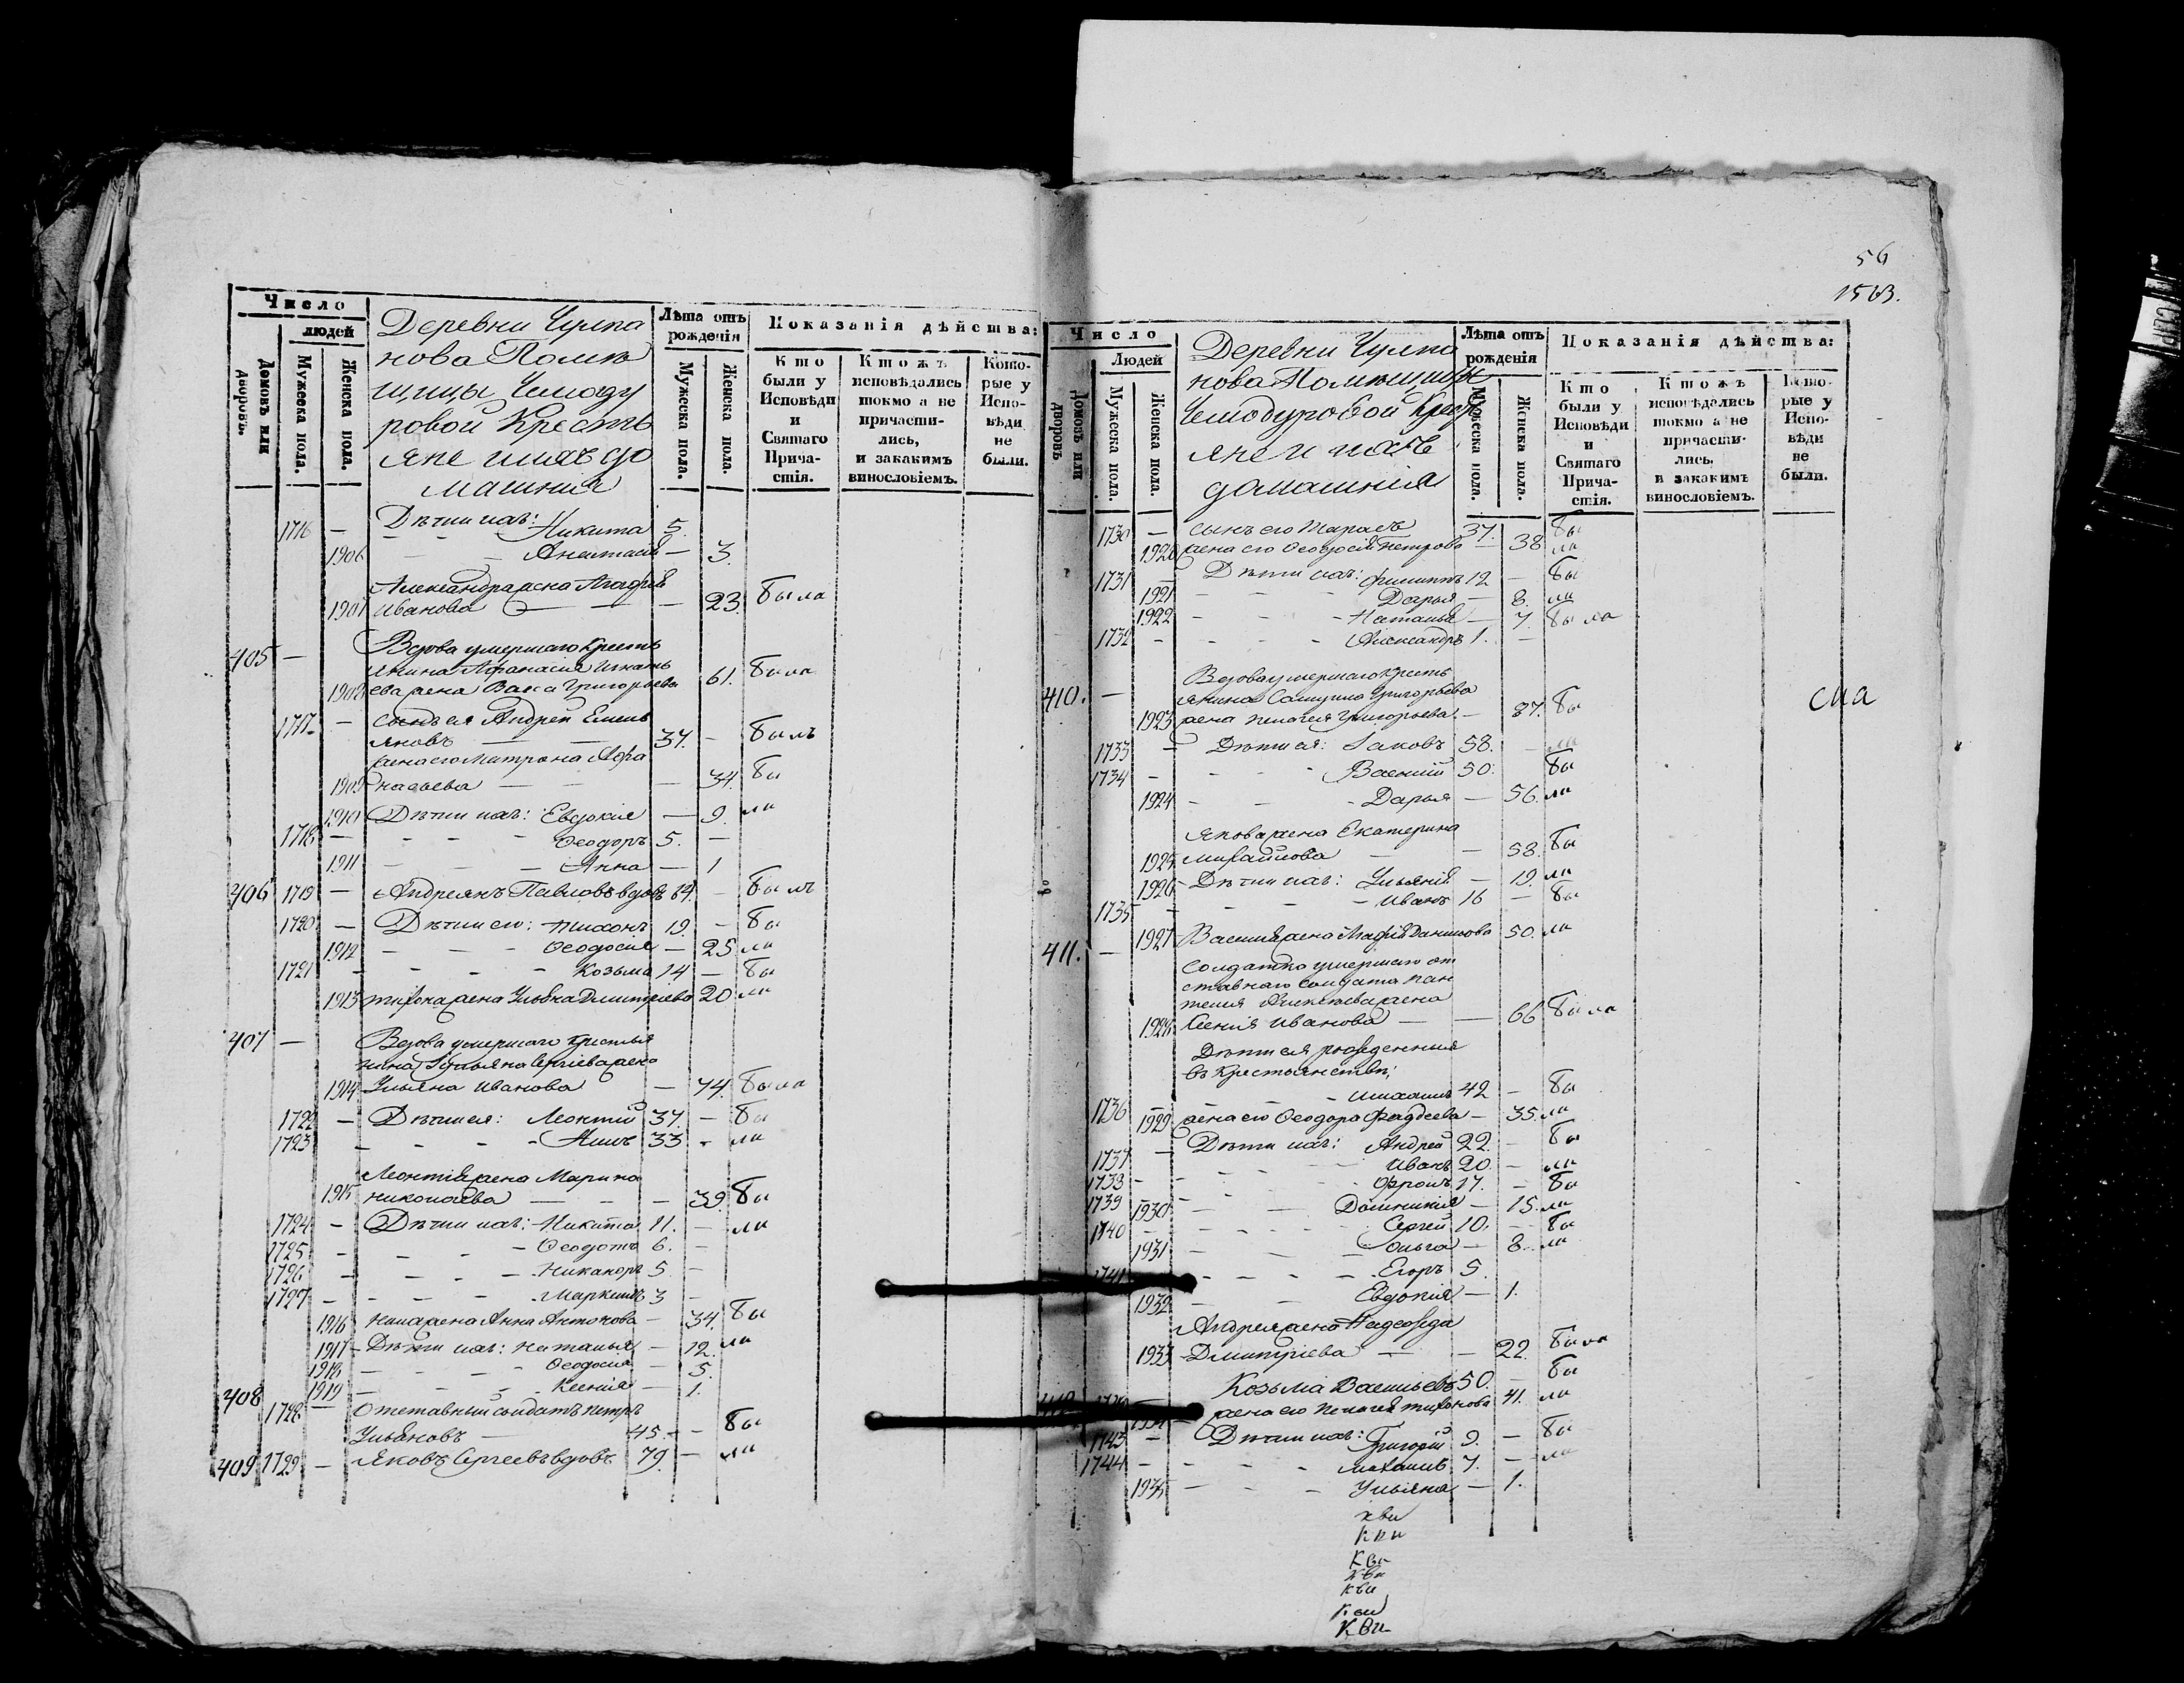 Число
людей
Домовъ или дворовъ.
Мужеска пола.
Женска пола.
Деревни Чулпа
нова Помѣ
щицы Чемоду
ровой Кресть
яне и ихъ до
машнія
Лѣта отъ рожденія
Мужеска пола.
Женска пола.
Показанія дѣйства:
Кто были у Исповѣди и Святаго Причастія.
Ктожъ исповѣдались токмо а не причастились, и закакимъ винословіемъ.
Которые у Исповѣди не были.
1716 — Дѣти ихъ: Никита 5.
1906 — — Анастасія — 3.
Александра жена Агафія
1907 Иванова — — — 23. была
405 — Вдова умершаго кресть
янина Афанасія Игнать
1908 ева жена Васса Григорьева 61. была
1717 — сынъ ея Андрей Емель
яновъ — — 37. — былъ
жена его Матрона Афа
1909 насьева — — — 34. бы
1910 Дѣти ихъ: Евдокія — 9. ли
1718 — — — — Ѳеодоръ 5. —
1911 — — — Анна — 1
406 1719 — Андреянъ Павловъ вдовъ 84. — былъ
1720 — Дѣти его: Тихонъ 19. — бы
1912 — — — Ѳеодосія — 25 ли
1721 — — — — Козьма 14 — бы
1913 Тихона жена Ульяна Дмитріева 20 ли
407 — Вдова умершаго крестья
нина Сергіева жена
1914 Ульяна Иванова — 74. была
1722 — Дѣти ея: Леонтій 37. — бы
1723 — — — — 33 — ли
Леонтія жена Марина
1915 Николаева — — — 39. бы
1724 — Дѣти ихъ: Никита 11. — ли
1725 — — — — Ѳеодотъ 6. —
1726 — — — — Никаноръ 5 —
1727 — — — — Маркеллъ 3 —
1916 жена Анна Антонова — 34. бы
1917 — Дѣти ихъ: Наталья — 12. ли
1918 — — — — Ѳеодосія — 5.
1919 — — — — Ксенія — 1.
408 1728 — Отставный солдатъ Петръ
Ульяновъ — 45. — бы
409 1729 — Яковъ Сергеевъ вдовъ 79. — ли
56
1563.
Число
Людей
Домовъ или дворовъ.
Мужеска пола.
Женска пола.
Деревни Чулпа
нова Помѣщицы
Чемодуровой Кресть
яне и ихъ
домашнія
Лѣта отъ рожденія
Мужеска пола.
Женска пола.
Показанія дѣйства:
Кто были у Исповѣди и Святаго Причастія.
Ктожъ исповѣдались токмо а не причастились, и закакимъ винословіемъ.
Которые у Исповѣди не были.
1730 — сынъ его Тарасъ 37. бы
1920 жена его Ѳеодосія Петрова — 38. ли
1731 — Дѣти ихъ: Филиппъ 12 — бы
1921 — — — Дарья — 8. ли
1922 — — — Наталья — 7. была
1732 — — — — Александръ 1. —
Вдова умершаго кресть
410. — янина Григорьева
1923 жена Пелагея Григорьева — 87. бы
1733 — Дѣти ея: Іаковъ 58. — ли
1734 — — — — Василій 50. бы
1924 — — — Дарья — 56. ли
Якова жена Екатерина
1925 Михайлова — — 58. бы
1926 — Дѣти ихъ: Ульянія — 19. ли
1735 — — — — Иванъ 16 — бы
1927 Василія жена Агафія Данилова 50. ли
411. — Солдатка умершаго от
ставнаго солдата Пан
телея Алексѣева жена
1928 Ксенія Иванова — — 66 была
Дѣти ея рожденныя
въ крестьянствѣ:
1736 — — — Михаилъ 42 — бы
1929 жена его Ѳеодора Фаддеева — 35. ли
1737 — Дѣти ихъ: Андрей 22. — бы
1738 — — — — Иванъ 20. — ли
1739 — — — Фролъ 17. — бы
1930 — — Домникія — 15. ли
1740 — — — Сергей 10. — бы
1931 — — — Ольга — 8. ли
1741 — — — — Егоръ 5.
1932 — — Евдокія — 1.
Андрея жена Надежда
1933 Дмитріева — — 22. была
Козьма Васильевъ 50. — бы
жена его Пелагея Тихонова 41. ли
1743 — Дѣти ихъ: Григорій 9. — бы
1744 — — — — Михаилъ 7. — ли
1935 — — — Ульяна — 1.
кви
кви
кви
кви
кви
кви
кви
сма